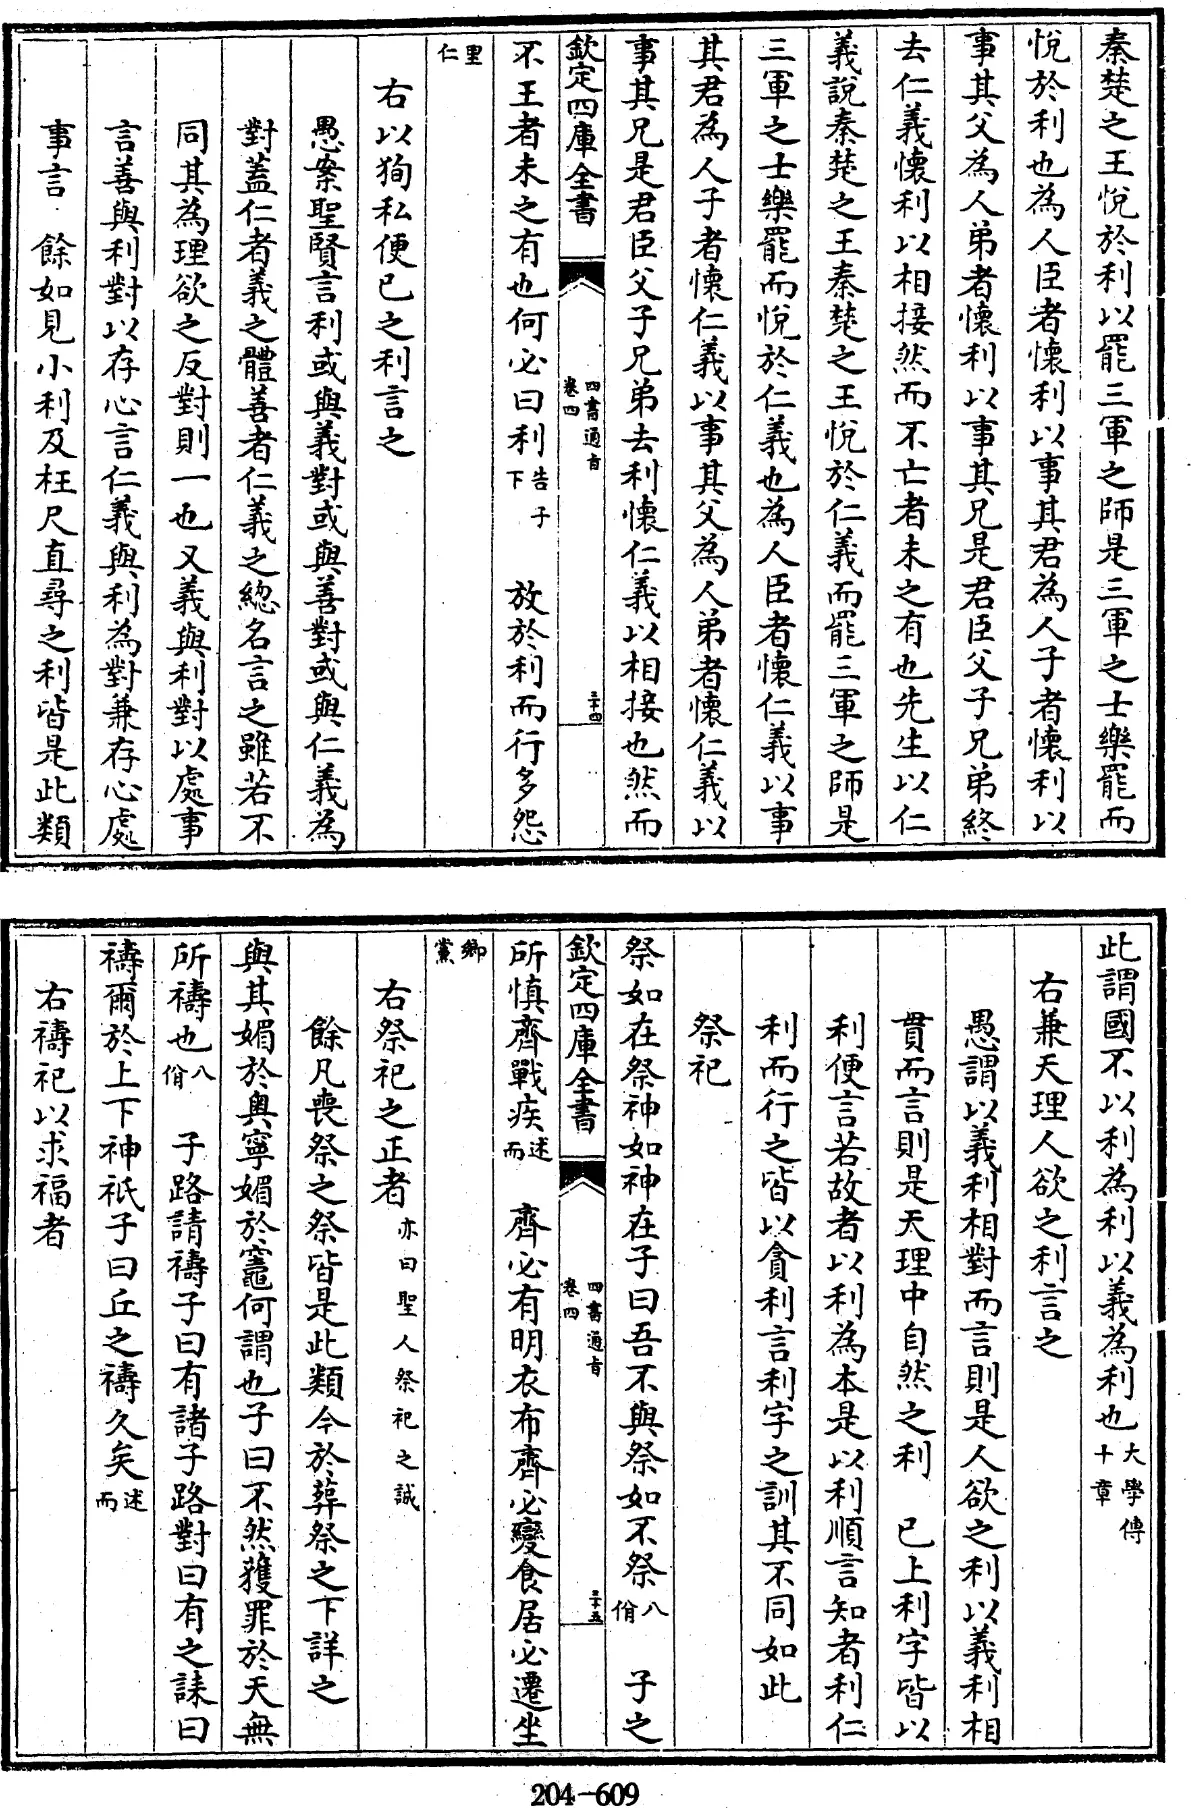 秦楚之王悅於利以罷三軍之師是三軍之士樂罷而
悅於利也為人臣者懷利以事其君為人子者懷利以
事其父為人弟者懷利以事其兄是君臣父子兄弟終
去仁義懷利以相接然而不亡者未之有也先生以仁
義說秦楚之王秦楚之王悅於仁義而罷三軍之師是
三軍之士樂罷而悅於仁義也為人臣者懷仁義以事
其君為人子者懷仁義以事其父為人弟者懷仁義以
事其兄是君臣父子兄弟去利懷仁義以相接也然而
欽定四庫全書 四書通旨 卷四 三十四
不王者未之有也何必曰利 告子下 放於利而行多怨
里仁
右以狥私便己之利言之
愚案聖賢言利或與義對或與善對或與仁義為
對蓋仁者義之體善者仁義之總名言之雖若不
同其為理欲之反對則一也又義與利對以處事
言善與利對以存心言仁義與利為對兼存心處
事言 餘如見小利及枉尺直尋之利皆是此類
此謂國不以利為利以義為利也 大學傳十章
右兼天理人欲之利言之
愚謂以義利相對而言則是人欲之利以義利相
貫而言則是天理中自然之利 已上利字皆以
利便言若故者以利為本是以利順言知者利仁
利而行之皆以貪利言利字之訓其不同如此
祭祀
祭如在祭神如神在子曰吾不與祭如不祭 八佾 子之
欽定四庫全書 四書通旨 卷四 三十五
所慎齊戰疾 述而 齊必有明衣布齊必變食居必遷坐
鄉黨
右祭祀之正者 亦曰聖人祭祀之誠
餘凡喪祭之祭皆是此類今於葬祭之下詳之
與其媚於奧寧媚於竈何謂也子曰不然獲罪於天無
所禱也 八佾 子路請禱子曰有諸子路對曰有之誄曰
禱爾於上下神祇子曰丘之禱久矣 述而
右禱祀以求福者
204-609